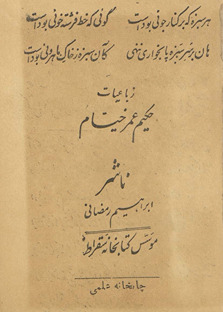 هر سبزه که بر کنار جوئی بوده است
گوئی که خط فرشته خوئی بوده است
هان بر سر سبزه پا بخواری ننهی
کان سبزه ز خاک ماهروئی بوده است
رباعیات
حکیم عمر خیام
ناشر
ابراهیم رمضانی
مؤسس کتابخانه سقراط
چاپخانه علمی